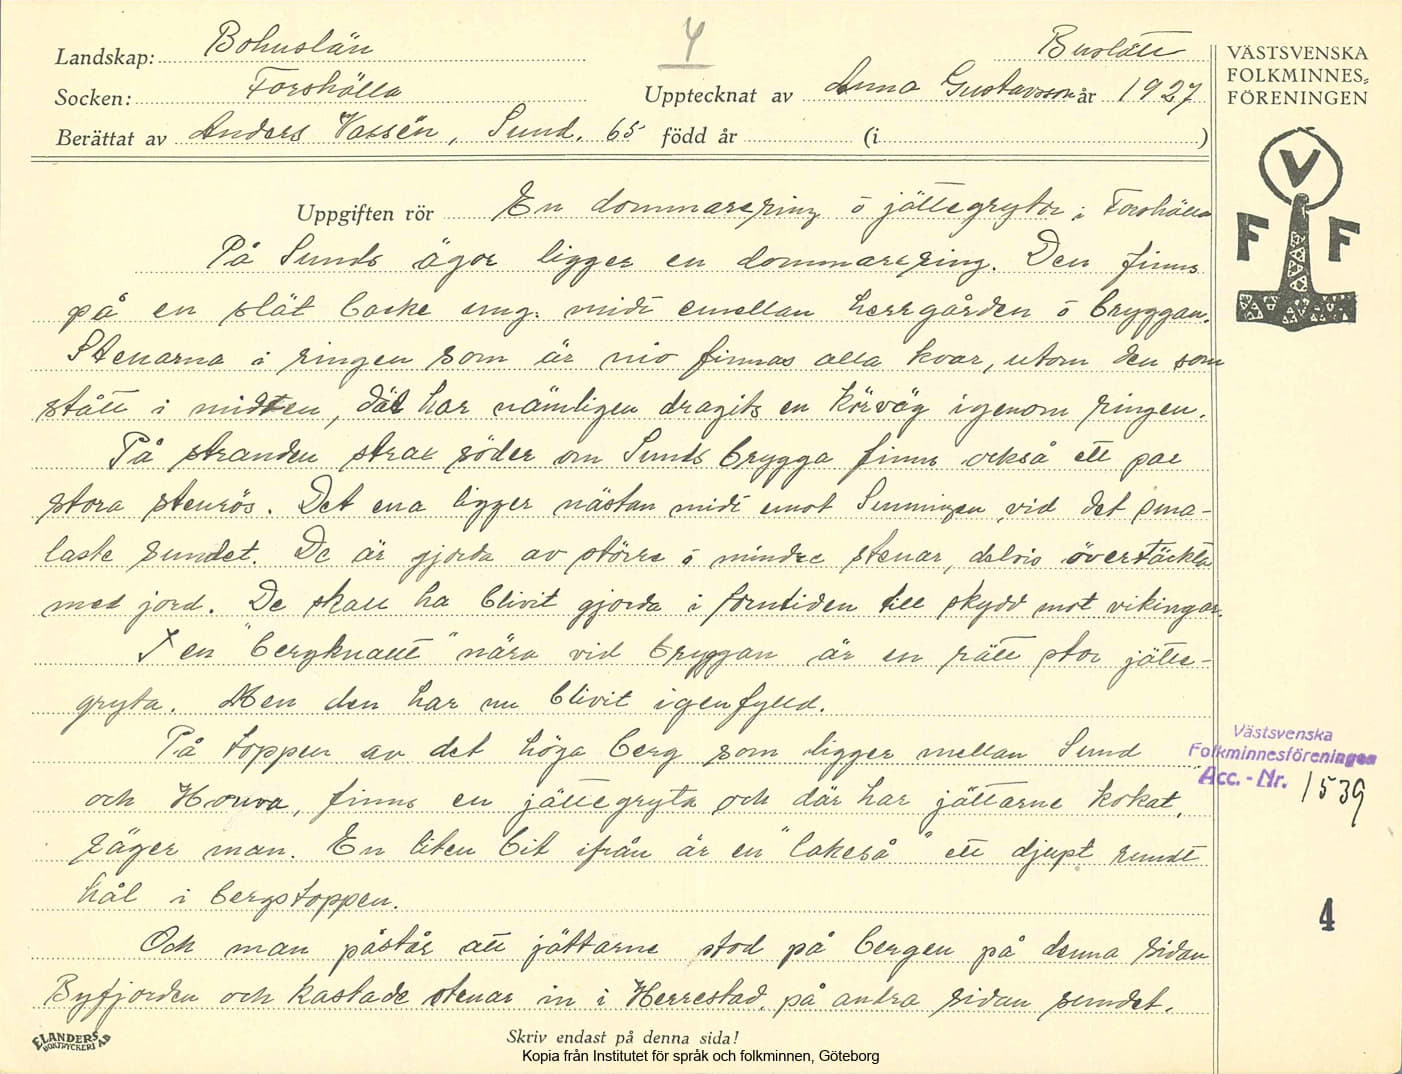 4
Buslätt
Landskap: Bohuslän
Socken: Forshälla
Upptecknat av Anna Gustavsson år 1927
Berättat av Anders Vassén, Sund. 65 född år (i )
VÄSTSVENSKA
FOLKMINNES-
FÖRENINGEN
V
F F
Uppgiften rör En dommarering o jättegrytor i Forshälla
På Sunds ägor ligger en dommarering. Den finns
på en slät backe ung. midt emellan herrgården o bryggan.
Stenarna i ringen som är nio finnas alla kvar, utom den som
stått i midten, där har nämligen dragits en körväg igenom ringen.
På stranden strax söder om Sunds brygga finns också ett par
stora stenrös. Det ena ligger nästan midt emot Sunningen vid det sma-
laste sundet. De är gjorda av större o mindre stenar, delvis övertäckta
med jord. De skall ha blivit gjorda i forntiden till skydd mot vikingar.
I en "bergknatt" nära vid bryggan är en rätt stor jätte-
gryta. Men den har nu blivit igenfylld.
På toppen av det höga berg som ligger mellan Sund
och Houva, finns en jättegryta och där har jättarne kokat,
säger man. En liten bit ifrån är en "lakeså" ett djupt rundt
hål i bergstoppen.
Och man påstår att jättarne stod på bergen på denna sidan
Byfjorden och kastade stenar in i Herrestad, på andra sidan sundet.
Västsvenska
Folkminnesföreningen
Acc.-Nr. 1539
4
ELANDERS
BOKTRYCKERI AB
Skriv endast på denna sida!
Kopia från Institutet för språk och folkminnen, Göteborg